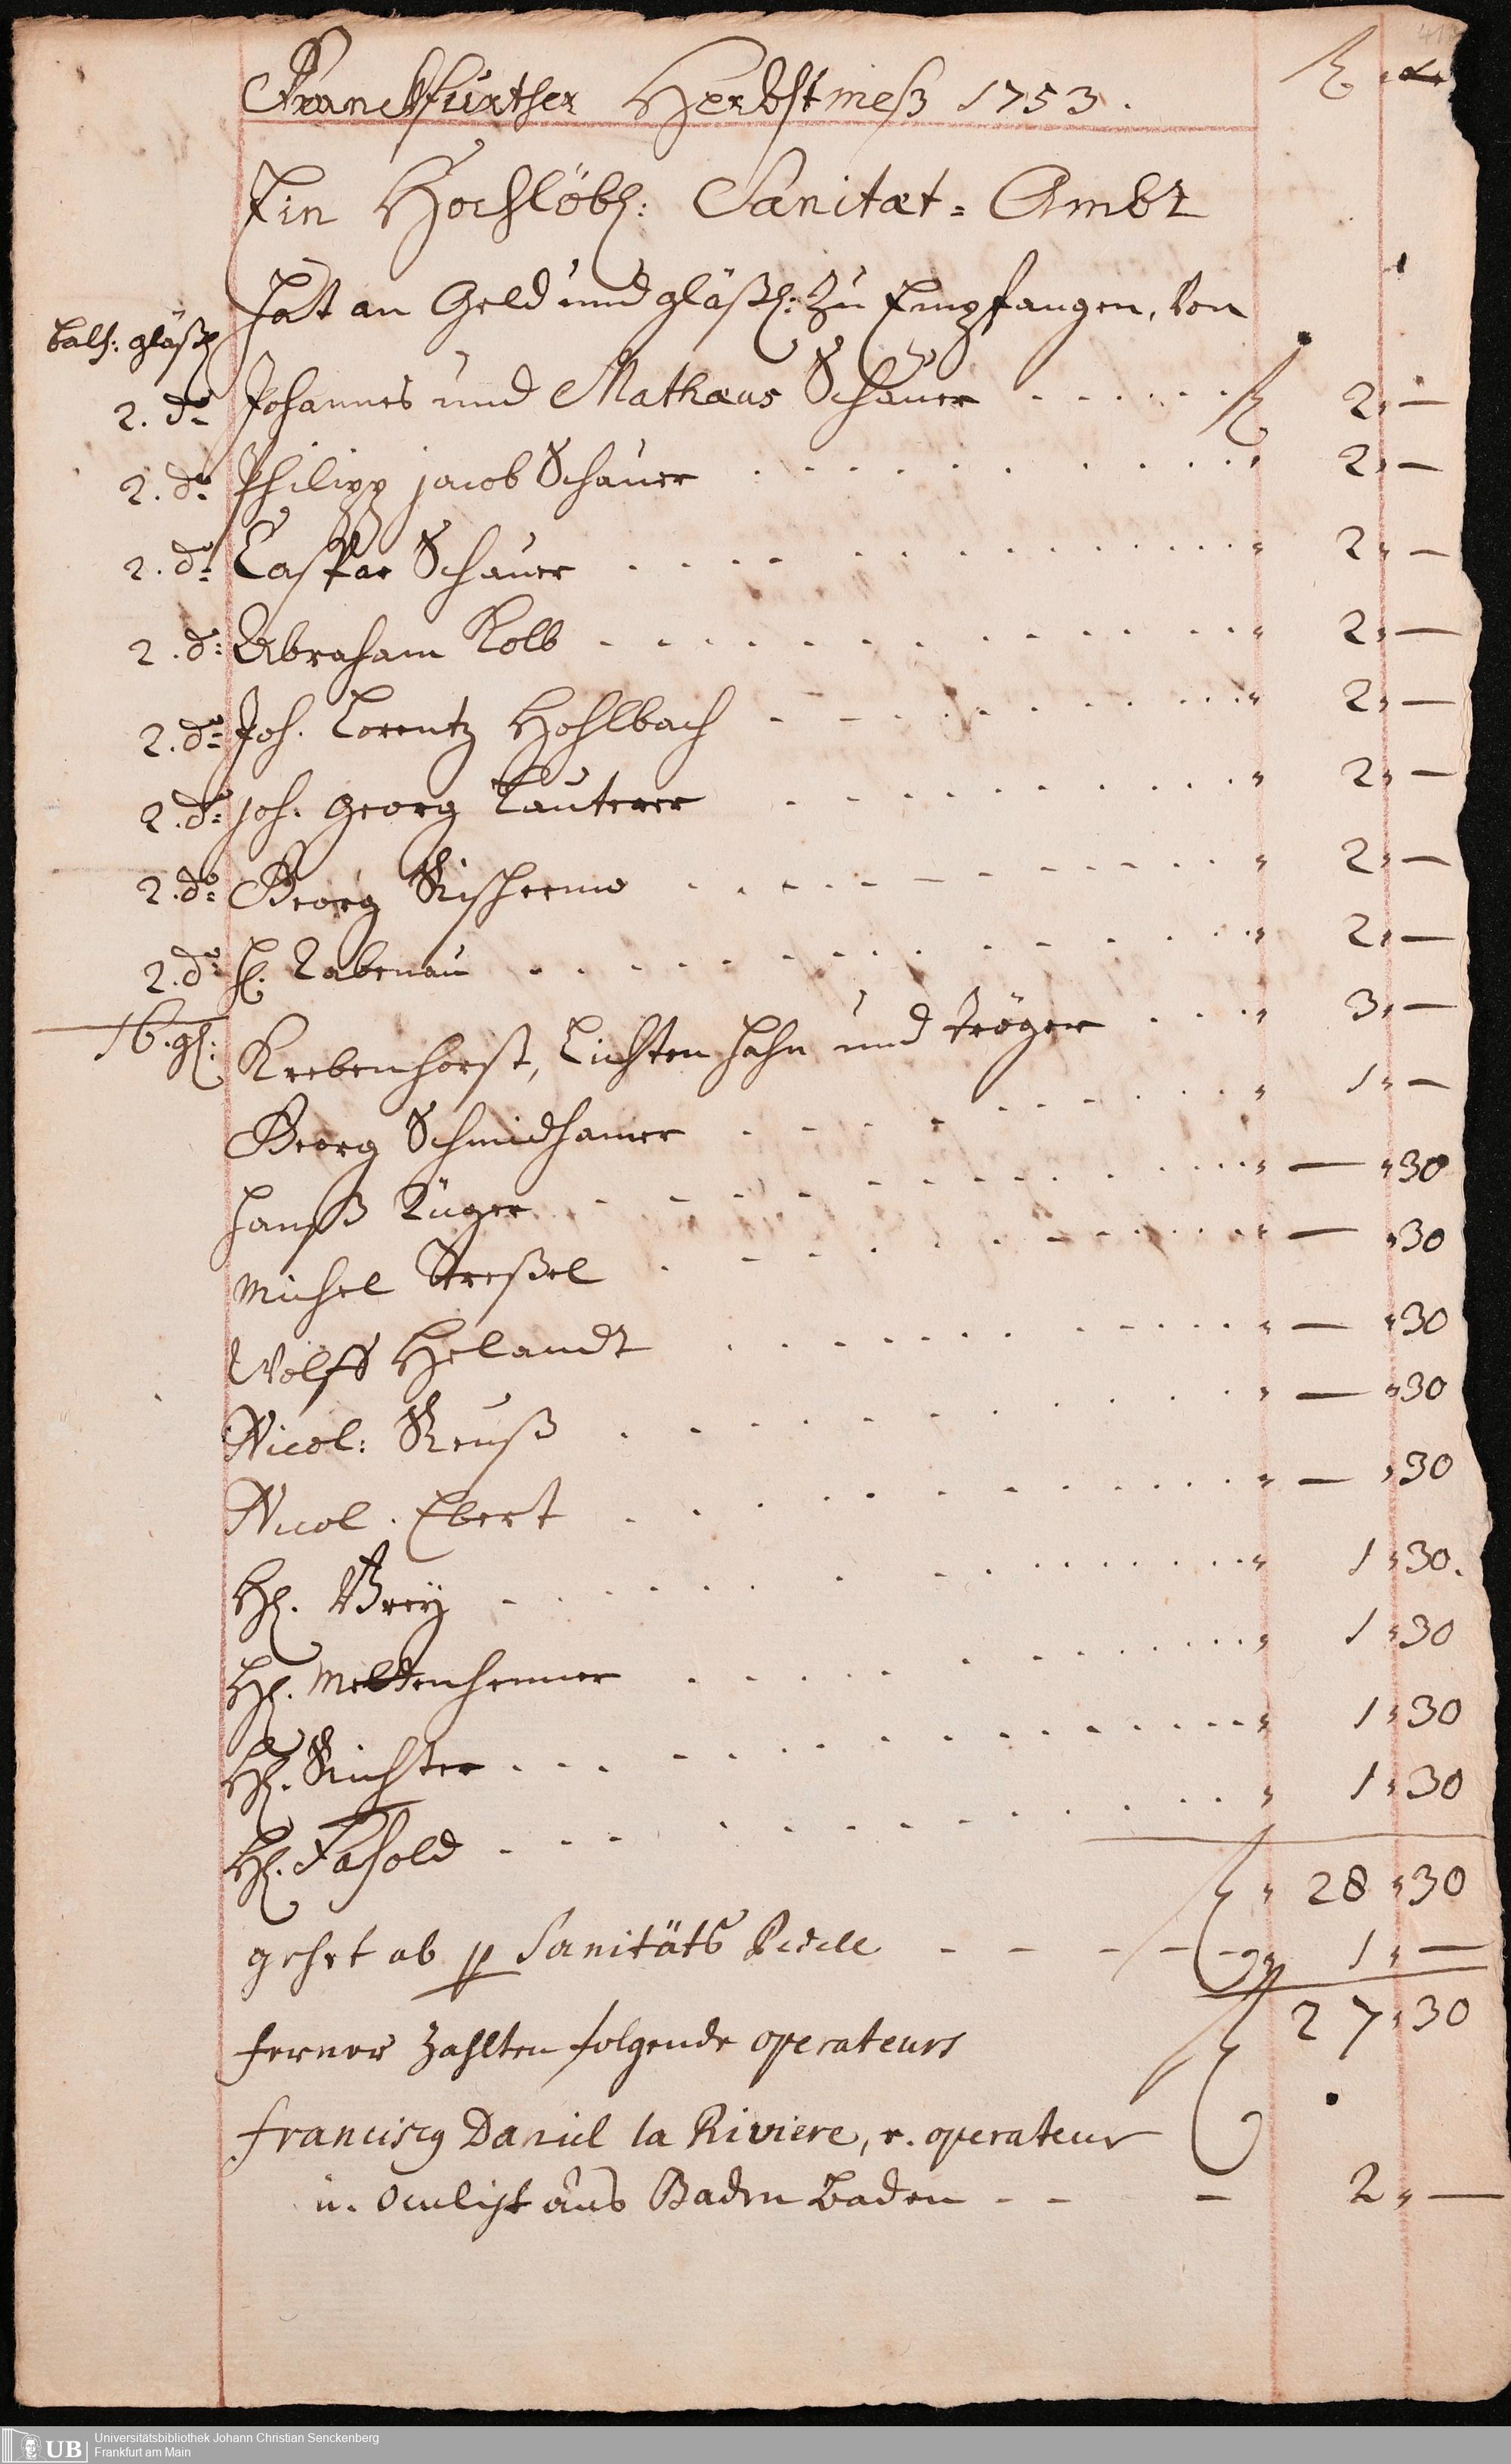 Franckfurther Herbstmeß 1753.
Ein Hochlöbl: Sanitæt = Ambt
hat an Geld und gläßl: zu Empfangen, von
bals: gläßl
2. do Johannes und Mathæus Schauer . . . . . . fl 2 „ —
2. do Philipp jacob Schauer . . . . . . . . . . „ 2 „ —
2. do Caspar Schauer . . . . . . . . . . . . „ 2 „ —
2. do Abraham Kolb . . . . . . . . . . . . „ 2 „ —
2. do Joh. Lorentz Hohlbach . . . . . . . . . . „ 2 „ —
2. do joh. Georg Lauterer . . . . . . . . . . „ 2 „ —
2. do Georg . . . . . . . . . . „ 2 „ —
2. do H. Rabenau . . . . . . . . . . . . „ 2 „ —
16. gl: Krebenhorst, Lichtenhahn und Tröger . . . „ 3 „ —
Georg Schmidhamer . . . . . . . . . . „ 1 „ —
Hanß Rüger . . . . . . . . . . . . „ — „ 30
Michel Streßel . . . . . . . . . . . „ — „ 30
Wolff Helandt . . . . . . . . . . . „ — „ 30
Nicol: Reuß . . . . . . . . . . . . „ — „ 30
Nicol. Ebert . . . . . . . . . . . . „ — „ 30
Hl. Grey . . . . . . . . . . . . . „ 1 „ 30.
Hl. Meltenheimer . . . . . . . . . . . „ 1 „ 30
Hl. Richter . . . . . . . . . . . . . „ 1 „ 30
Hl. Fasold . . . . . . . . . . . . . „ 1 „ 30
fl „ 28 „ 30
gehet ab p Sanitäts Pedell - - - - - „ 1 „ —
fl 27 „ 30
ferner zahlten folgende operateurs
Franciscq Daniel la Riviere, r. operateur
u. Oculist aus Baden Baden - - - 2 „ —
UB
Universitätsbibliothek Johann Christian Senckenberg
Frankfurt am Main